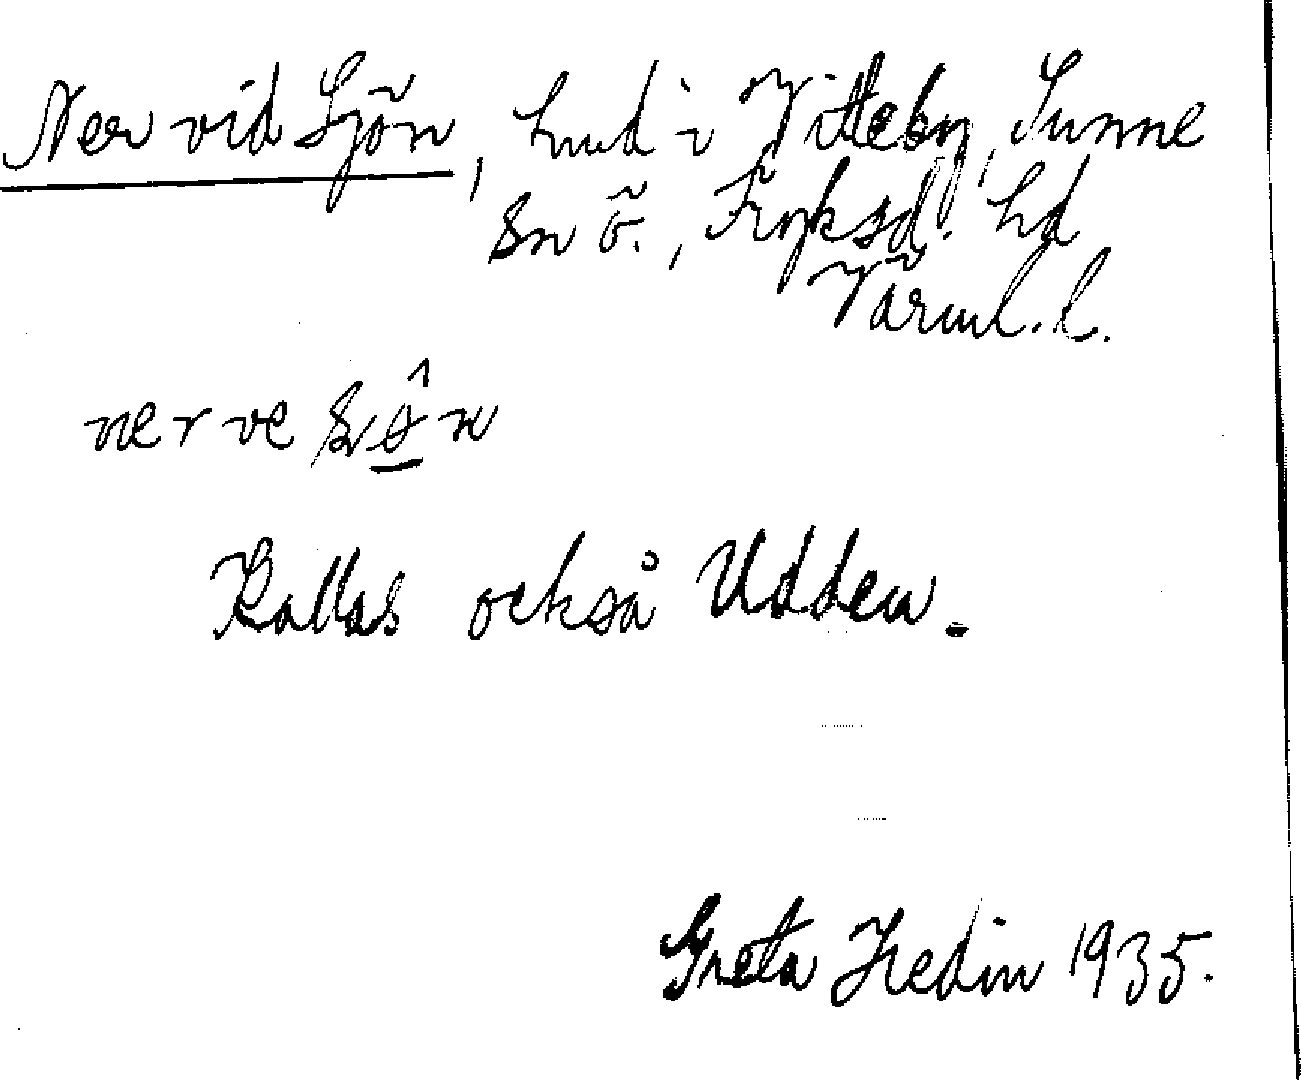 Ner vid Sjön, hmd i Vitteby, Sunne
Sn ö., Fryksd. hd
Värml. l.
ner ve
Kallas också Udden.
Greta Hedin 1935.